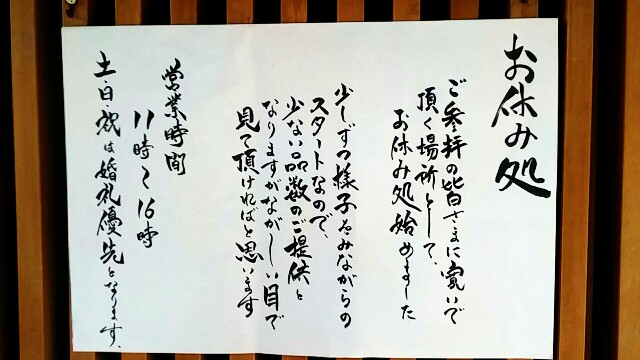 お休み処
ご参拝の皆さまに寛いで
頂く場所として、
お休み処始めました
少しずつ様子をみながらの
スタートなので、
少ない品数のご提供と
なりますがながーい目で
見て頂ければと思います
営業時間
11時〜16時
土・日・祝は婚礼優先となります、